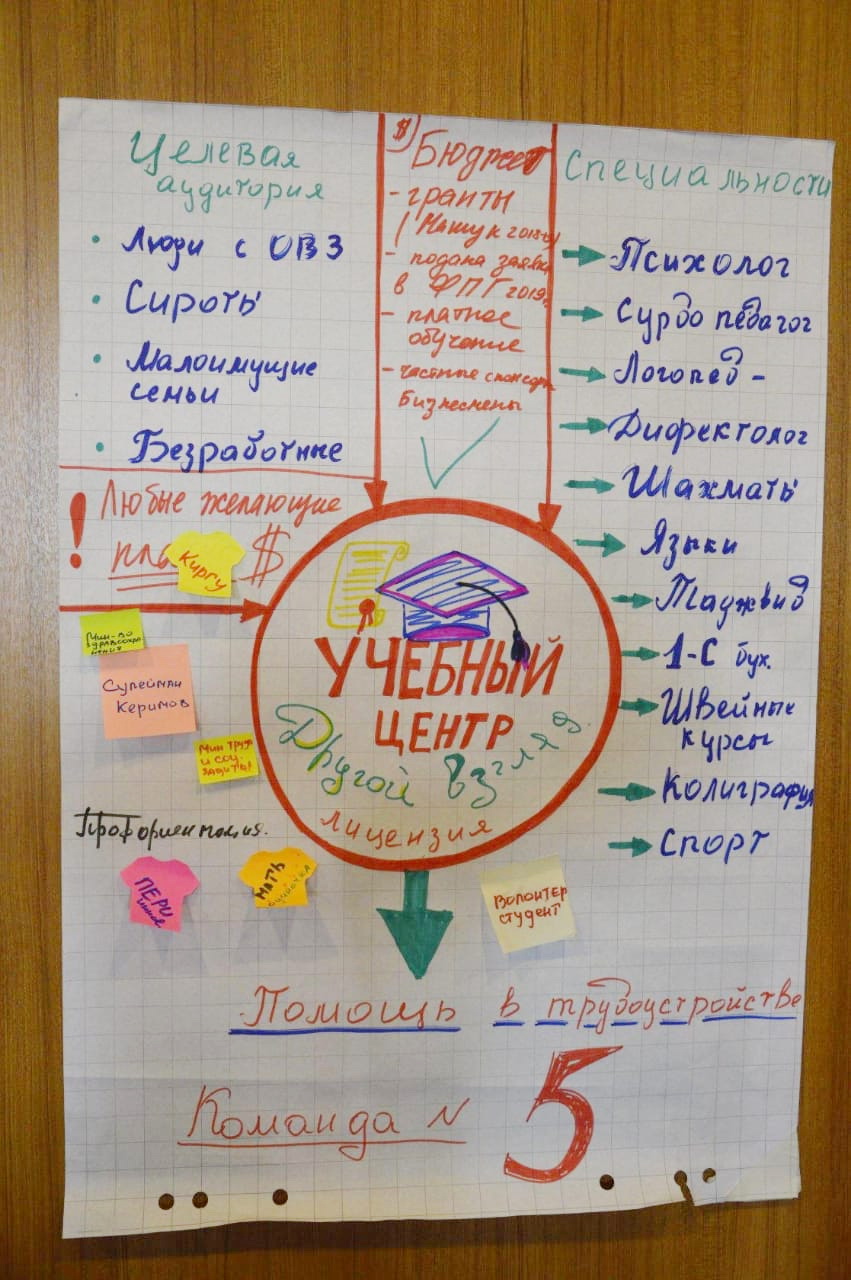 Целевая
аудитория
• Люди с ОВЗ
• Сироты
• Малоимущие
семьи
• Безработные
! Любые желающие
$
$) Бюджет
- гранты
(Машук 2018
- подана заявка
в ФПГ 2019
- платное
обучение
- частные спонсоры
бизнесмены
Специальности
Психолог
Сурдо педагог
Логопед -
Дифектолог
Шахматы
Языки
Таджвид
1-С бух.
Швейные
курсы
Колиграфия
Спорт
УЧЕБНЫЙ
ЦЕНТР
Другой взгляд
лицензия
Киргу
Мин-во
здравоохра
нения
Сулейман
Керимов
Мин труда
и соц.
защиты!
Профориентация.
ПЕРИ
МАТЬ
Волонтер
студент
Помощь в трудоустройстве
Команда N 5